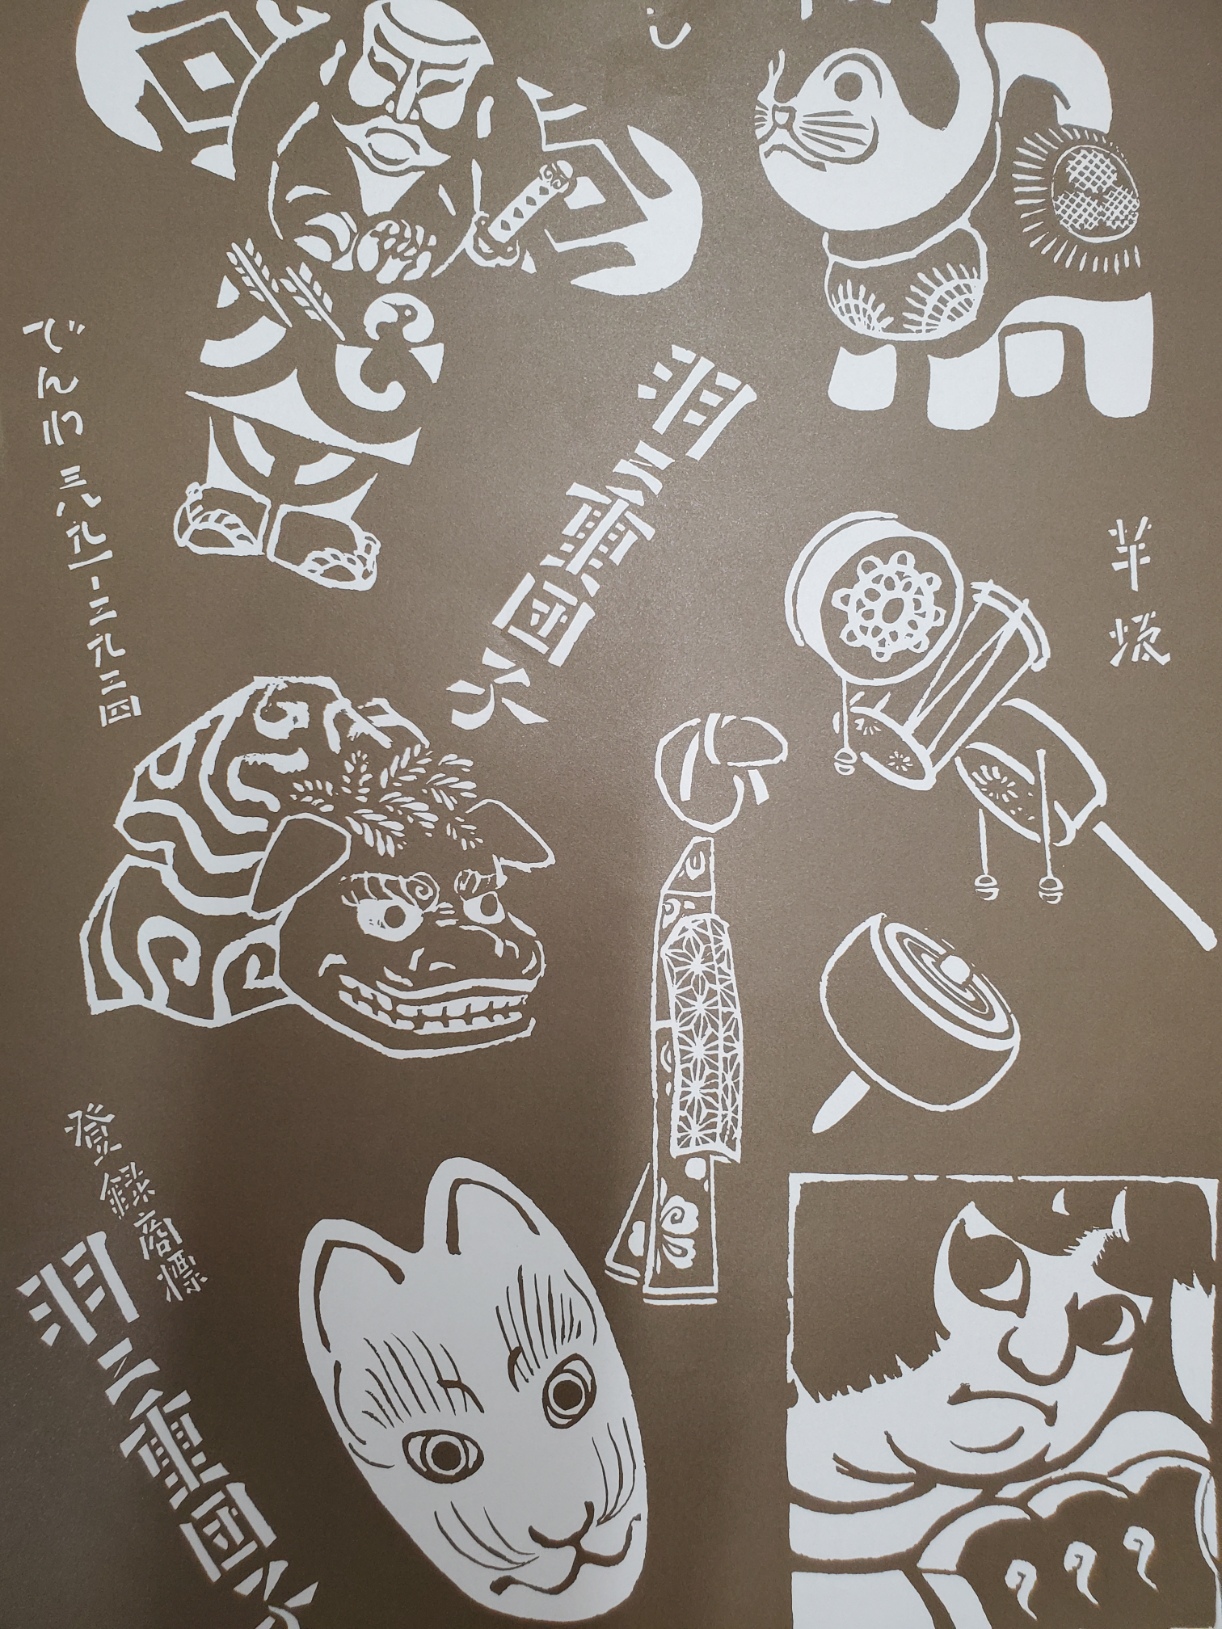 でんわ三八九一-二九二四
羽二重団子
芋坂
登録商標
羽二重団子